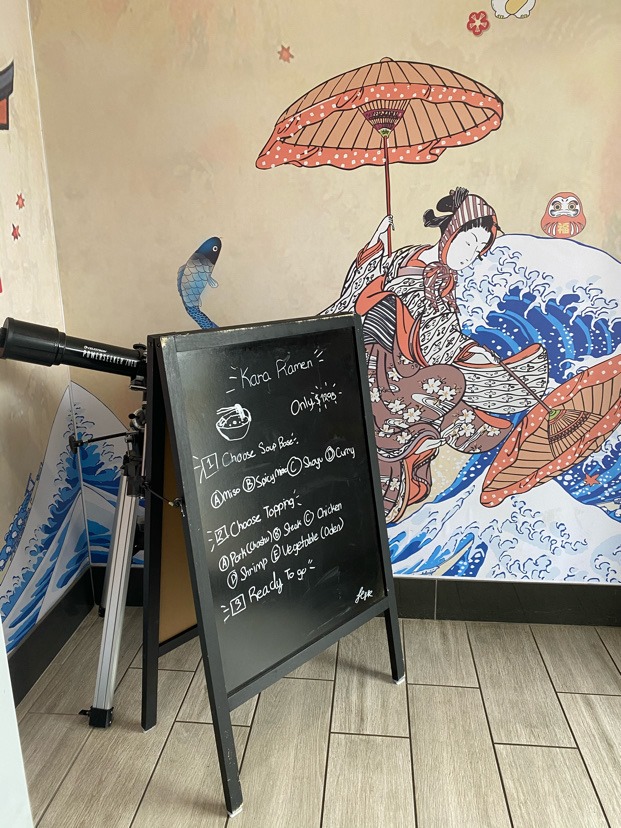 Kara Ramen
Only $12.95
1 Choose Soup Base
A Miso B Spicy Miso C Shoyu D Curry
2 Choose Topping
A Pork (Chashu) B Steak C Chicken
D Shrimp E Vegetable (Oden)
3 Ready To go
POWERSEEKER
福